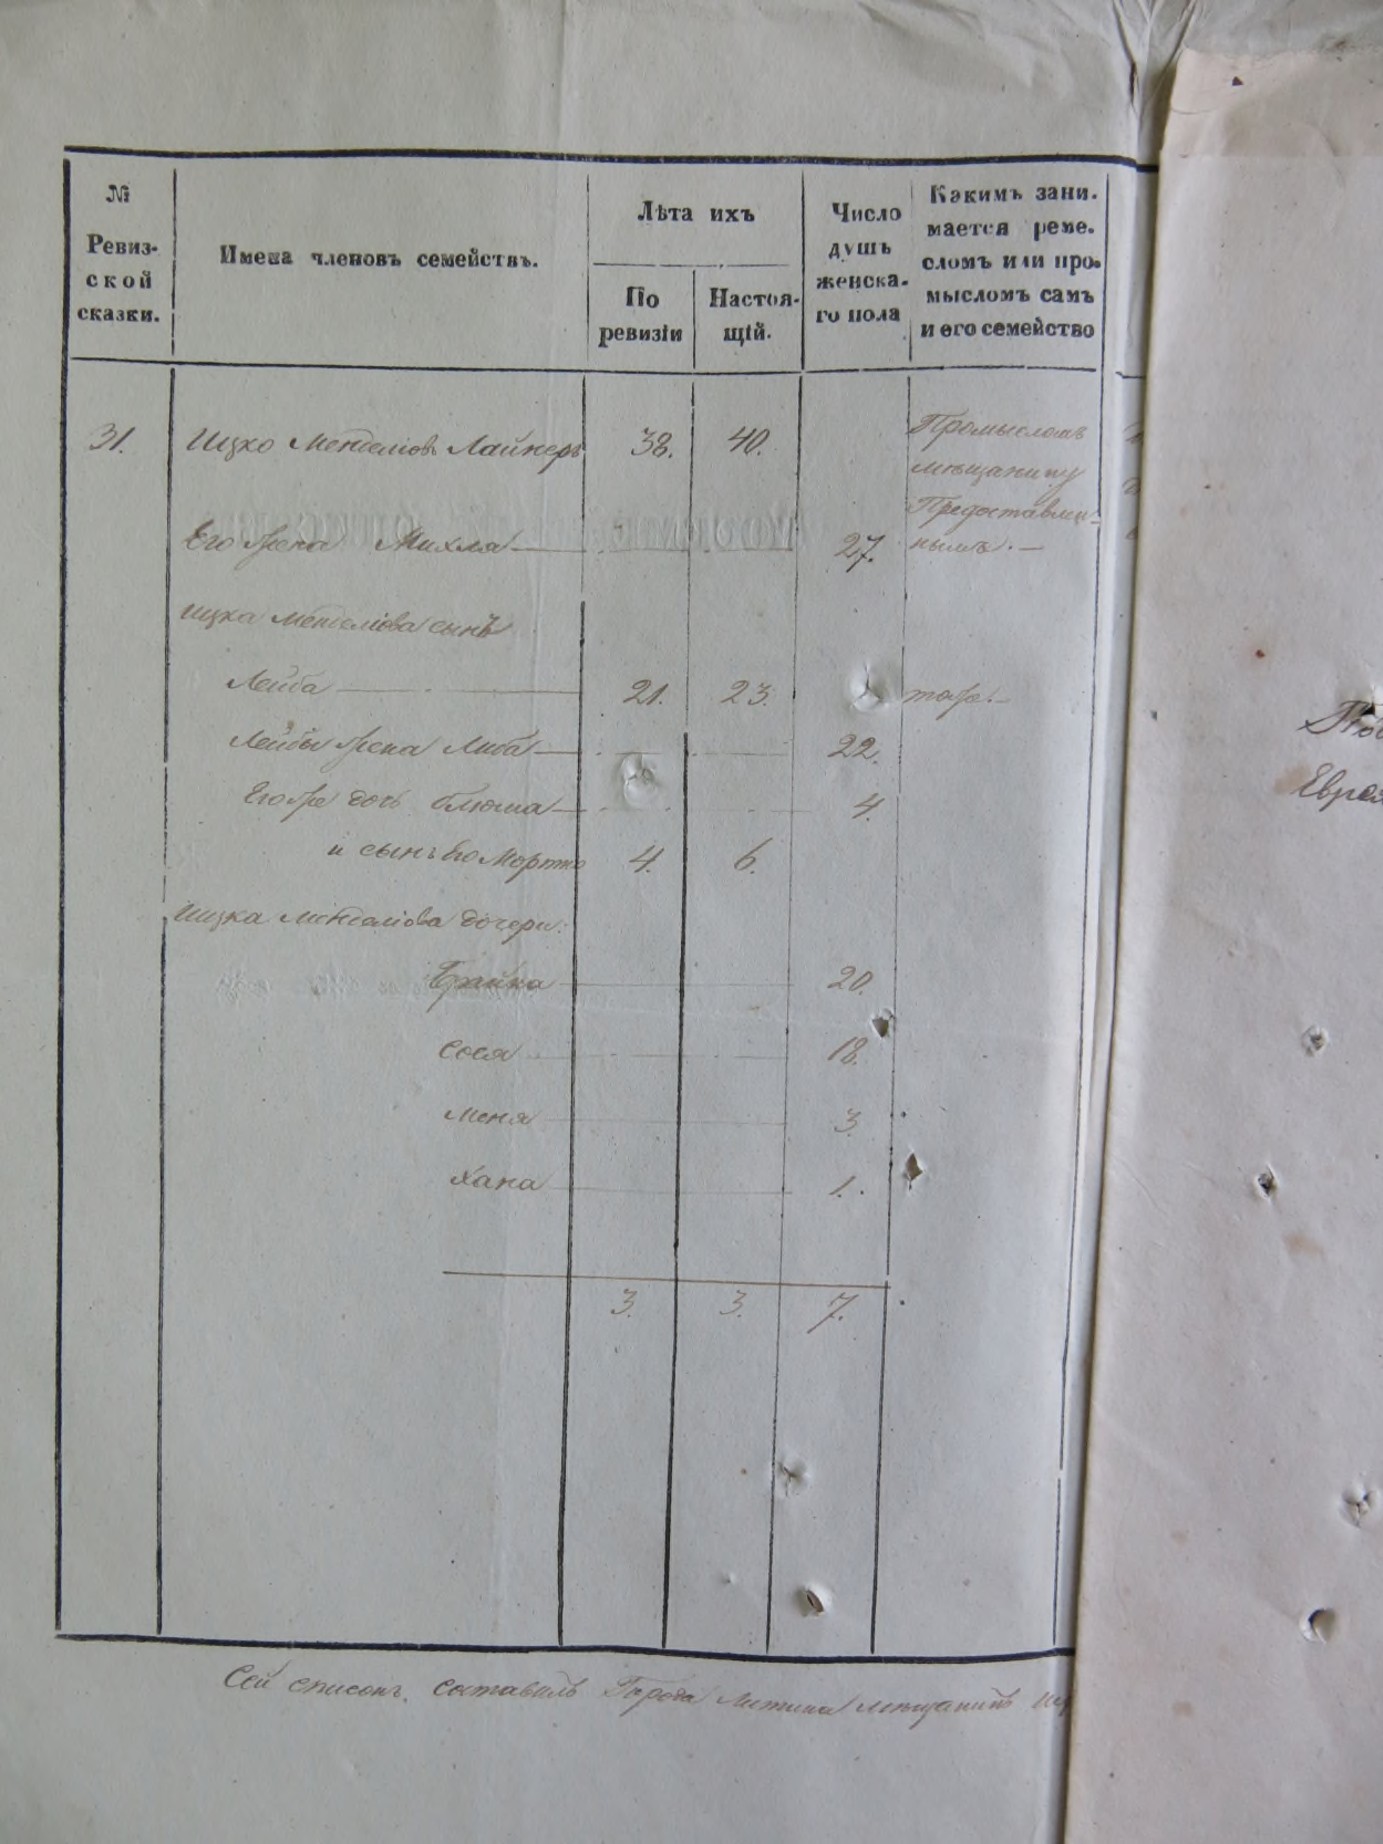 №
Ревиз-
ской
сказки.
Имена членовъ семействъ.
Лѣта ихъ
По
ревизіи
Настоя-
щій.
Число
душъ
женска-
го пола
Какимъ зани-
мается реме-
сломъ или про-
мысломъ самъ
и его семейство
31. Ицко Менделіовъ Лайнеръ 38. 40. Промысломъ
мѣщанину
Предоставлен-
Его жена Михля 27. нымъ. —
Ицка Менделіова сынъ
Лейба 21. 23. тоже. —
Лейбы жена Либа 22.
Его же дочь Блюма 4.
и сынъ Его Мортко 4. 6.
Ицка Менделіова дочери:
Брайна 20.
Сося 18.
Меня 3.
Хана 1.
3. 3. 7.
Сей списокъ составилъ Города Литина мѣщанинъ
Евре